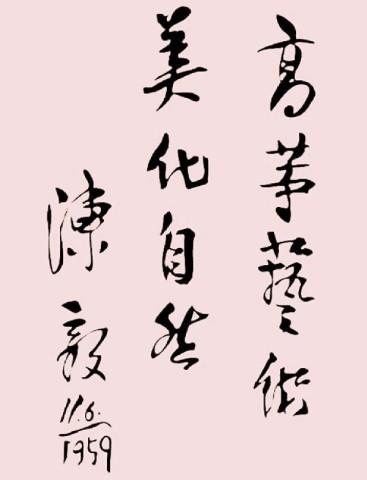 高等藝術
美化自然
陳毅
11.6.
1959